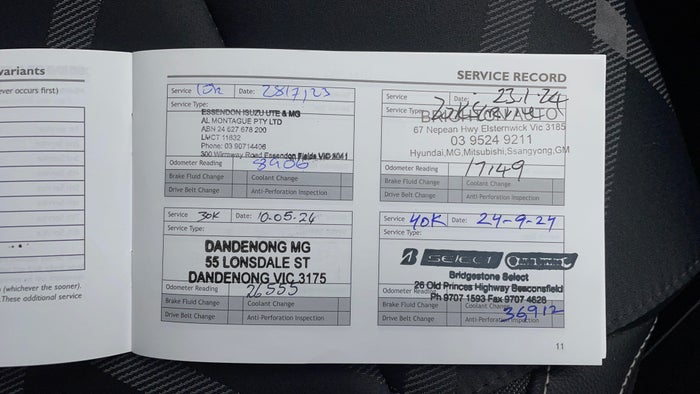 variants
ever occurs first)
(whichever the sooner).
.These additional service
SERVICE RECORD
Service 10k Date: 28/7/23
Service Type:
ESSENDON ISUZU UTE & MG
AL MONTAGUE PTY LTD
ABN 24 627 678 200
LMCT 11832
Phone: 03 90714406
300 Wirraway Road Essendon Fields VIC 3041
Odometer Reading 8906
Brake Fluid Change Coolant Change
Drive Belt Change Anti-Perforation Inspection
Service Date: 23.1.24
Service Type:
BRIGHTON AUTO
67 Nepean Hwy Elsternwick Vic 3185
03 9524 9211
Hyundai,MG,Mitsubishi,Ssangyong,GM
Odometer Reading 17149
Brake Fluid Change Coolant Change
Drive Belt Change Anti-Perforation Inspection
Service 30K Date: 10-05-24
Service Type:
DANDENONG MG
55 LONSDALE ST
DANDENONG VIC 3175
Odometer Reading 26555
Brake Fluid Change Coolant Change
Drive Belt Change Anti-Perforation Inspection
Service 40K Date: 24-9-24
Service Type:
B SELECT
Bridgestone Select
26 Old Princes Highway Beaconsfield
Odometer Reading Ph 9707 1593 Fax 9707 4628
Brake Fluid Change Coolant Change 36912
Drive Belt Change Anti-Perforation Inspection
11